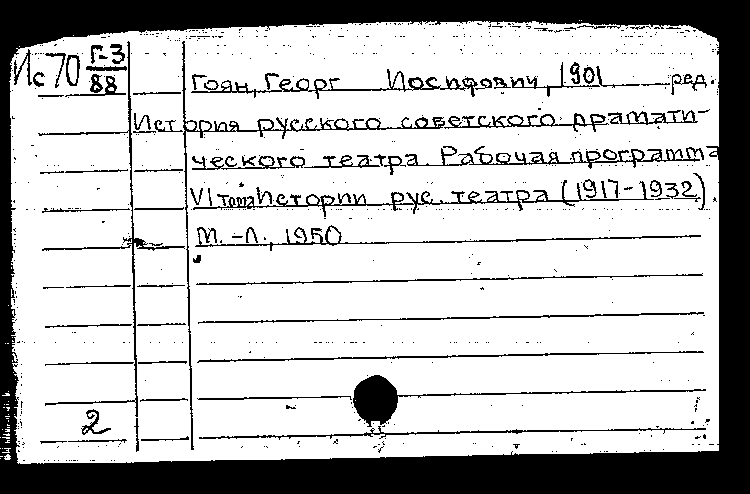 Ис70 Г-3
88
Гоян, Георг Иосифович, 1901 ред.
История русского советского драмати-
ческого театра. Рабочая программа
VI тома Истории рус. театра (1917-1932).
М.-Л., 1950
2